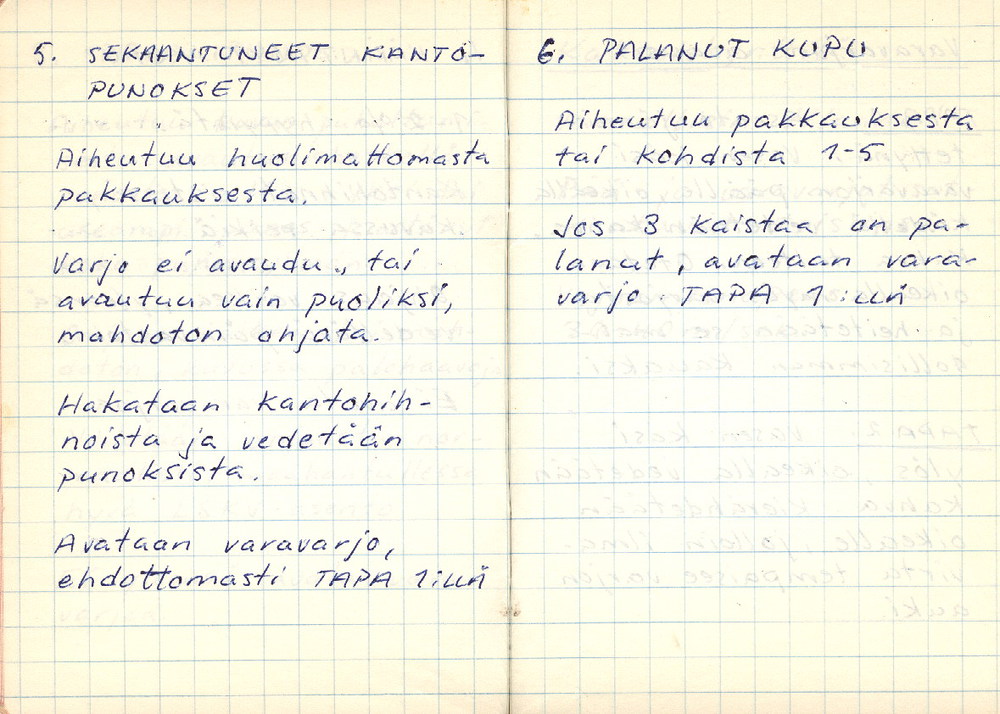 5. SEKAANTUNEET KANTO-
PUNOKSET
Aiheutuu huolimattomasta
pakkauksesta.
Varjo ei avaudu, tai
avautuu vain puoliksi,
mahdoton ohjata.
Hakataan kantohih-
noista ja vedetään
punoksista.
Avataan varavarjo,
ehdottomasti TAPA 1:llä
6. PALANUT KUPU
Aiheutuu pakkauksesta
tai kohdista 1-5
Jos 3 kaistaa on pa-
lanut, avataan vara-
varjo TAPA 1:llä